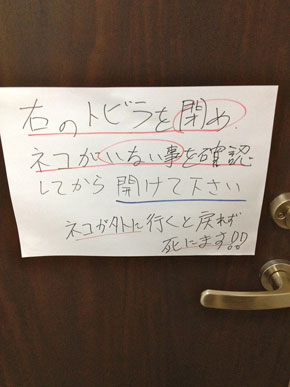 右のトビラを閉め
ネコがいない事を確認
してから開けて下さい
ネコが外に行くと戻れず
死にます!!